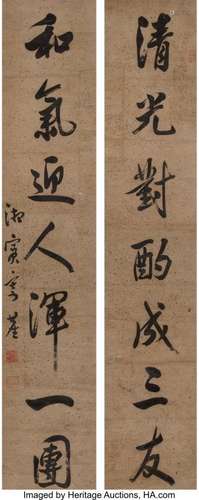 清光對酌成三友
和氣迎人渾一團
Imaged by Heritage Auctions, HA.com